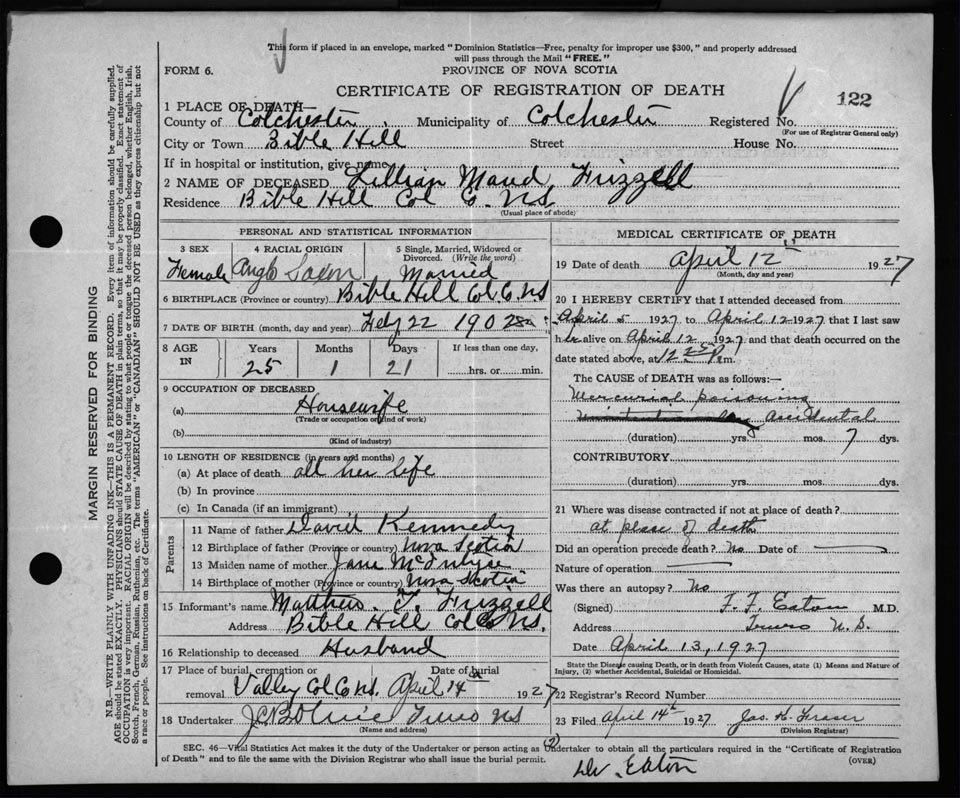 This form if placed in an envelope, marked "Dominion Statistics—Free, penalty for improper use $300," and properly addressed
will pass through the Mail "FREE."
FORM 6.
PROVINCE OF NOVA SCOTIA
CERTIFICATE OF REGISTRATION OF DEATH
122
1 PLACE OF DEATH—
County of Colchester Municipality of Colchester Registered No.
(For use of Registrar General only)
City or Town Bible Hill Street House No.
If in hospital or institution, give name
2 NAME OF DECEASED Lillian Maud Frizzell
Residence Bible Hill Col C. N.S.
(Usual place of abode)
PERSONAL AND STATISTICAL INFORMATION
3 SEX 4 RACIAL ORIGIN 5 Single, Married, Widowed or Divorced. (Write the word)
Female Anglo Saxon Married
6 BIRTHPLACE (Province or country) Bible Hill Col. C. N.S
7 DATE OF BIRTH (month, day and year) Feby 22 1902
8 AGE IN Years Months Days If less than one day,
25 1 21 hrs. or min.
9 OCCUPATION OF DECEASED
(a) Housewife
(Trade or occupation or kind of work)
(b)
(Kind of industry)
10 LENGTH OF RESIDENCE (in years and months)
(a) At place of death all her life
(b) In province
(c) In Canada (if an immigrant)
Parents
11 Name of father David Kennedy
12 Birthplace of father (Province or country) Nova Scotia
13 Maiden name of mother Jane McIntyre
14 Birthplace of mother (Province or country) Nova Scotia
15 Informant's name Matthew F. Frizzell
Address Bible Hill Col Co N.S.
16 Relationship to deceased Husband
17 Place of burial, cremation or removal Valley Col Co N.S. Date of burial April 14 1927
18 Undertaker Truro NS
(Name and address)
MEDICAL CERTIFICATE OF DEATH
19 Date of death April 12th 1927
(Month, day and year)
20 I HEREBY CERTIFY that I attended deceased from
April 5 1927 to April 12 1927 that I last saw
her alive on April 12 1927 and that death occurred on the
date stated above, at 12 25 P.m.
The CAUSE of DEATH was as follows:—
Mercurial poisoning
accidental
(duration) yrs. mos. 7 dys.
CONTRIBUTORY
(duration) yrs. mos. dys.
21 Where was disease contracted if not at place of death?
at place of death
Did an operation precede death? No Date of
Nature of operation
Was there an autopsy? No
(Signed) F. F. Eaton M.D.
Address Truro N.S.
Date April 13, 1927
State the Disease causing Death, or in death from Violent Causes, state (1) Means and Nature of Injury, (2) whether Accidental, Suicidal or Homicidal.
22 Registrar's Record Number
23 Filed April 14th 1927 Jas. H. Fraser
(Division Registrar)
SEC. 46—Vital Statistics Act makes it the duty of the Undertaker or person acting as Undertaker to obtain all the particulars required in the "Certificate of Registration
of Death" and to file the same with the Division Registrar who shall issue the burial permit.
(OVER)
(2)
Dr. Eaton
MARGIN RESERVED FOR BINDING
N.B.—WRITE PLAINLY WITH UNFADING INK—THIS IS A PERMANENT RECORD. Every item of information should be carefully supplied.
AGE should be stated EXACTLY. PHYSICIANS should STATE CAUSE OF DEATH in plain terms, so that it may be properly classified. Exact statement of
OCCUPATION is very important. RACIAL ORIGIN will be described by stating to what people or tongue the deceased person belonged, whether English, Irish,
Scotch, French, German, Russian, Ruthenian, etc. The terms "AMERICAN" or "CANADIAN" SHOULD NOT BE USED as they express citizenship but not
a race or people. See instructions on back of Certificate.